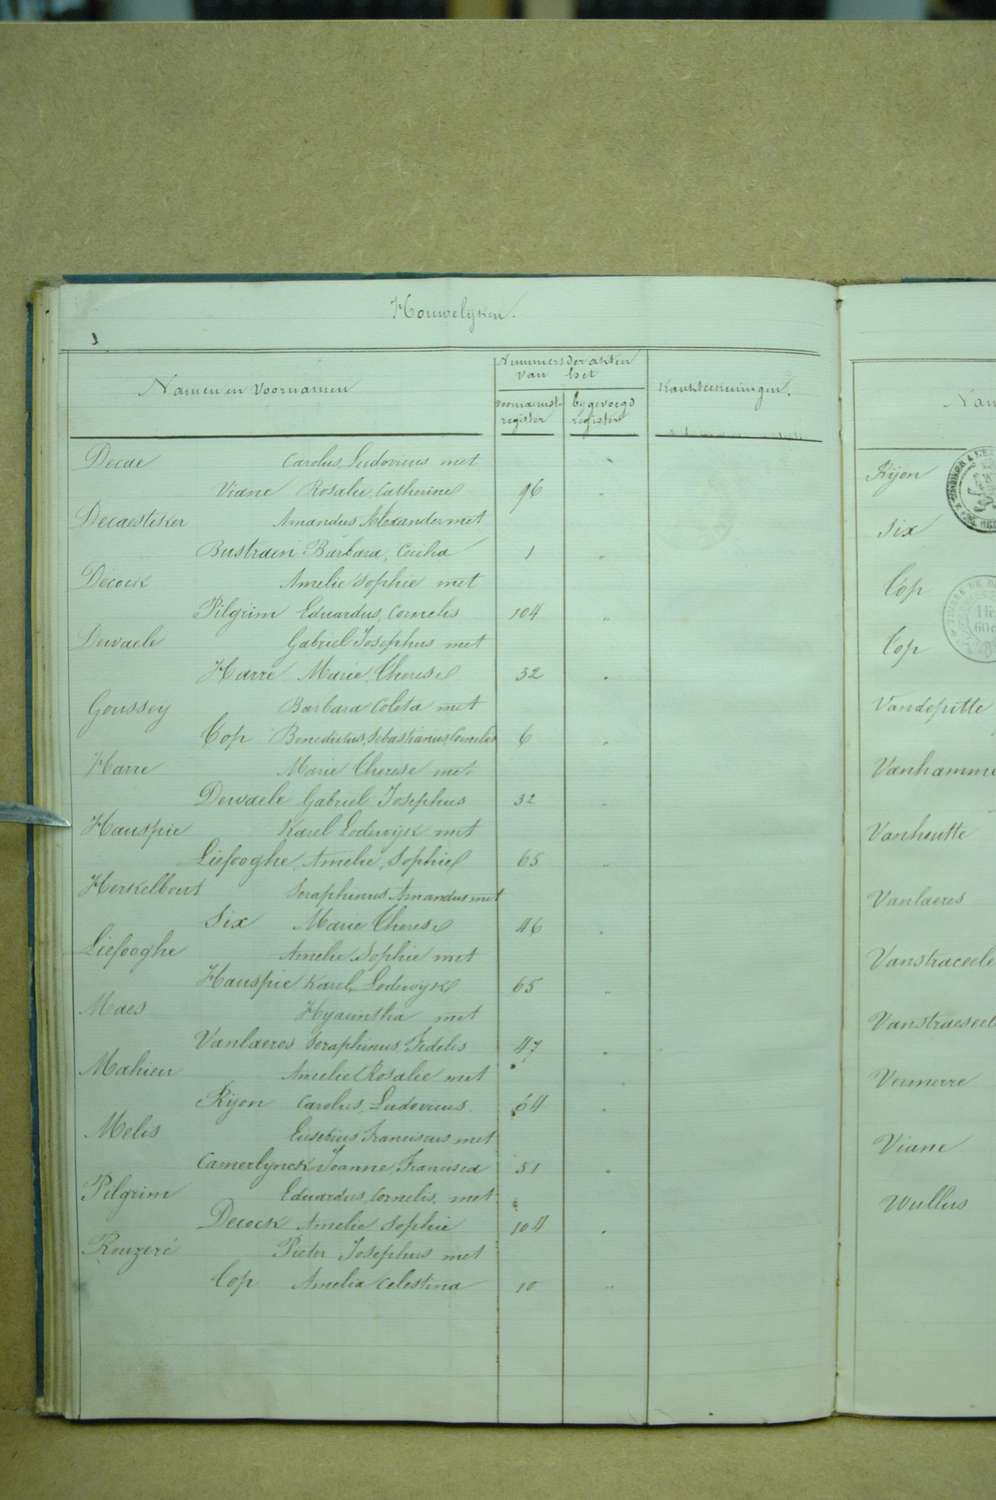 Houwelyken.
Namen en Voornamen
Nummers der akten
van het
voornaemste
register
bygevoegd
register
Kantteekeningen.
Decae Carolus Ludovicus met
Viane Rosalie, Catherine 96 "
Decaesteker Amandus Alexander met
Bustraen Barbara, Cecilia 1 "
Decock Amelie Sophie met
Pilgrim Eduardus, Cornelis 104 "
Dewaele Gabriel Josephus met
Harre Marie, Therese 32 "
Goussey Barbara Coleta met
Cop Benedictus, Sebastianus, Cornelis 6 "
Harre Marie Therese met
Dewaele Gabriel Josephus 32 "
Hauspie Karel Lodewyk met
Liefooghe, Amelie, Sophie 65 "
Herkelbout Seraphinus Amandus met
Six Marie Therese 46 "
Liefooghe Amelie, Sophie met
Hauspie Karel, Lodewyk 65 "
Maes met
Vanlaeres Seraphinus, Fidelis 47 "
Mahieu Amelie Rosalie met
Ryon Carolus, Ludovicus 64 "
Melis Eusebius Franciscus met
Camerlynck Joanne, Francisca 51 "
Pilgrim Eduardus, Cornelis, met
Decock Amelie Sophie 104 "
Rouzeré Pieter Josephus met
Cop Amelia Celestina 10 "
Nam
Ryon
Six
Cop
Cop
Vandepitte
Vanhamme
Vanhoutte
Vanlaeres
Vanstraceele
Vanstraeseel
Vermerre
Viane
Wullus